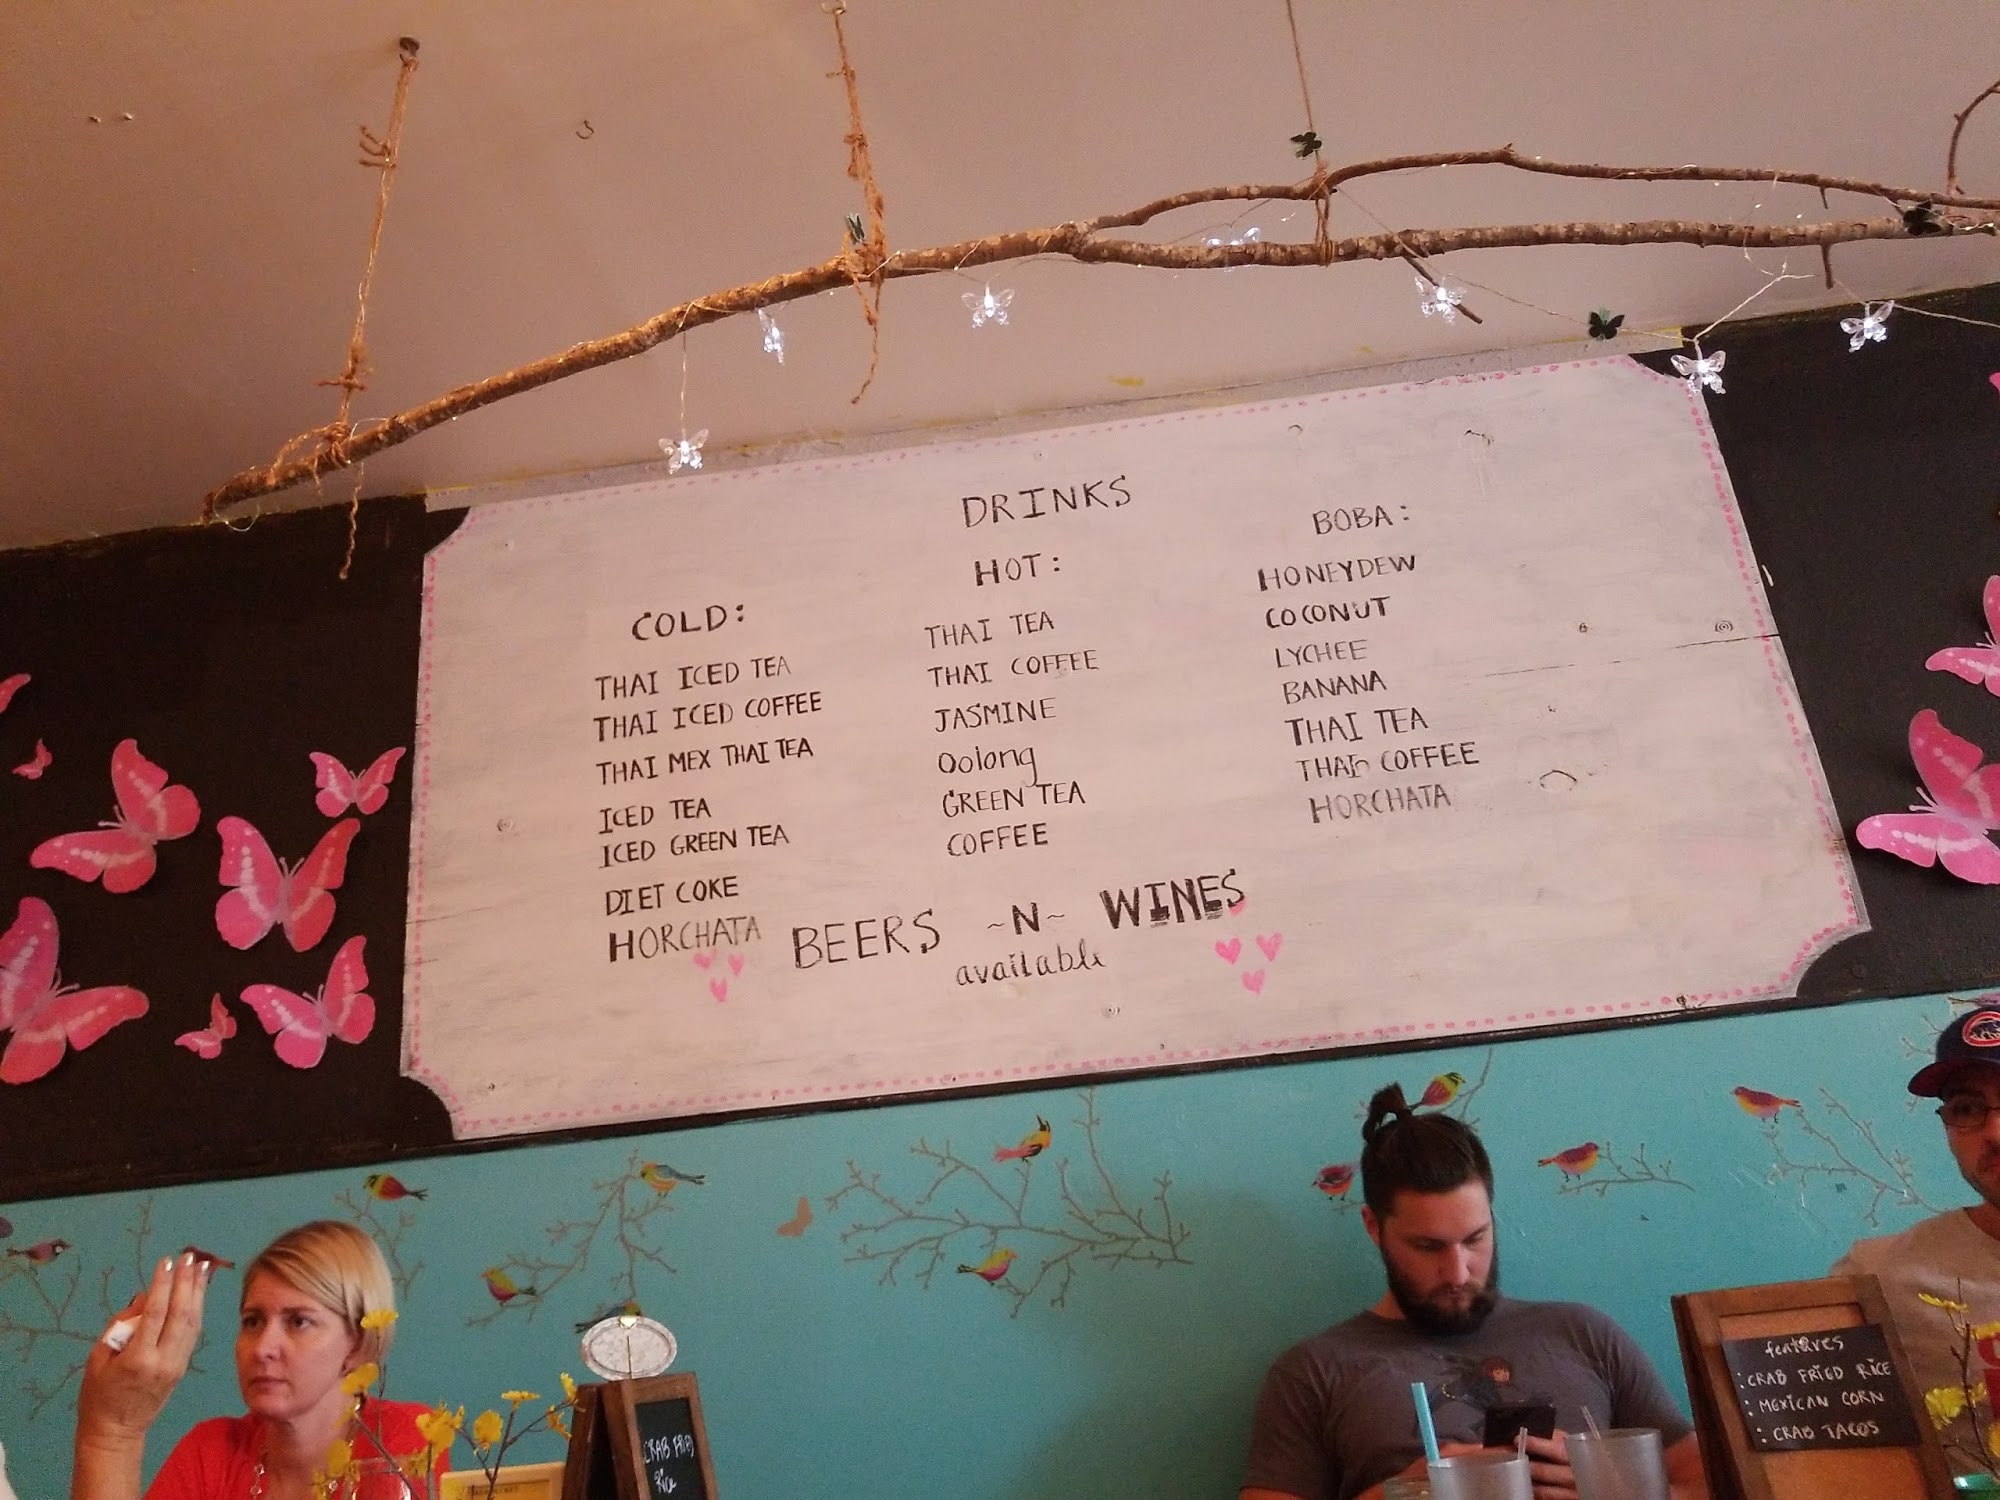 DRINKS
COLD:
THAI ICED TEA
THAI ICED COFFEE
THAI MEX THAI TEA
ICED TEA
ICED GREEN TEA
DIET COKE
HORCHATA
HOT:
THAI TEA
THAI COFFEE
JASMINE
Oolong
GREEN TEA
COFFEE
BOBA:
HONEYDEW
COCONUT
LYCHEE
BANANA
THAI TEA
THAI COFFEE
HORCHATA
BEERS ~N~ WINES
available
CRAB FRIED
Rice
features
: CRAB FRIED RICE
: MEXICAN CORN
: CRAB TACOS